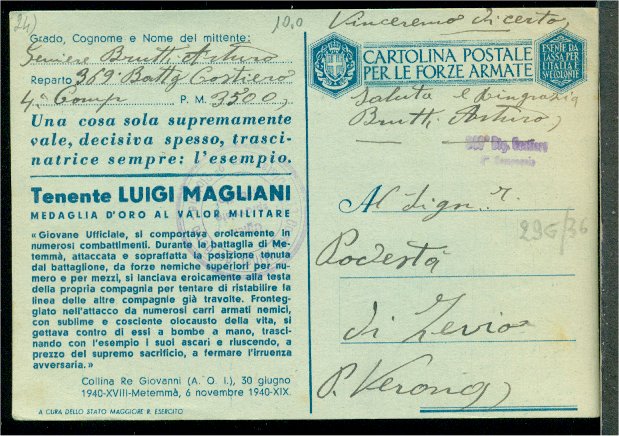 24)
10.0
Grado, Cognome e Nome del mittente:
Geniere Brutti Arturo
Reparto 369° Battg Costiero
4ª Comp P. M. 3500
Una cosa sola supremamente
vale, decisiva spesso, trasci-
natrice sempre: l'esempio.
Tenente LUIGI MAGLIANI
MEDAGLIA D'ORO AL VALOR MILITARE
«Giovane Ufficiale, si comportava eroicamente in
numerosi combattimenti. Durante la battaglia di Me-
temmà, attaccata e sopraffatta la posizione tenuta
dal battaglione, da forze nemiche superiori per nu-
mero e per mezzi, si lanciava eroicamente alla testa
della propria compagnia per tentare di ristabilire la
linea delle altre compagnie già travolte. Fronteg-
giato nell'attacco da numerosi carri armati nemici,
con sublime e cosciente olocausto della vita, si
gettava contro di essi a bombe a mano, trasci-
nando con l'esempio i suoi ascari e riuscendo, a
prezzo del supremo sacrificio, a fermare l'irruenza
avversaria.»
Collina Re Giovanni (A. O. I.), 30 giugno
1940-XVIII-Metemmà, 6 novembre 1940-XIX.
A CURA DELLO STATO MAGGIORE R. ESERCITO
Vinceremo di certo,
CARTOLINA POSTALE
PER LE FORZE ARMATE
ESENTE DA
TASSA PER
L'ITALIA E
SVE COLONIE
Saluta e Ringrazia
Brutti Arturo
Btg. Costiero
Compagnia
Al Sign. r.
296/36
Podestà
di Zevio
P. Verona